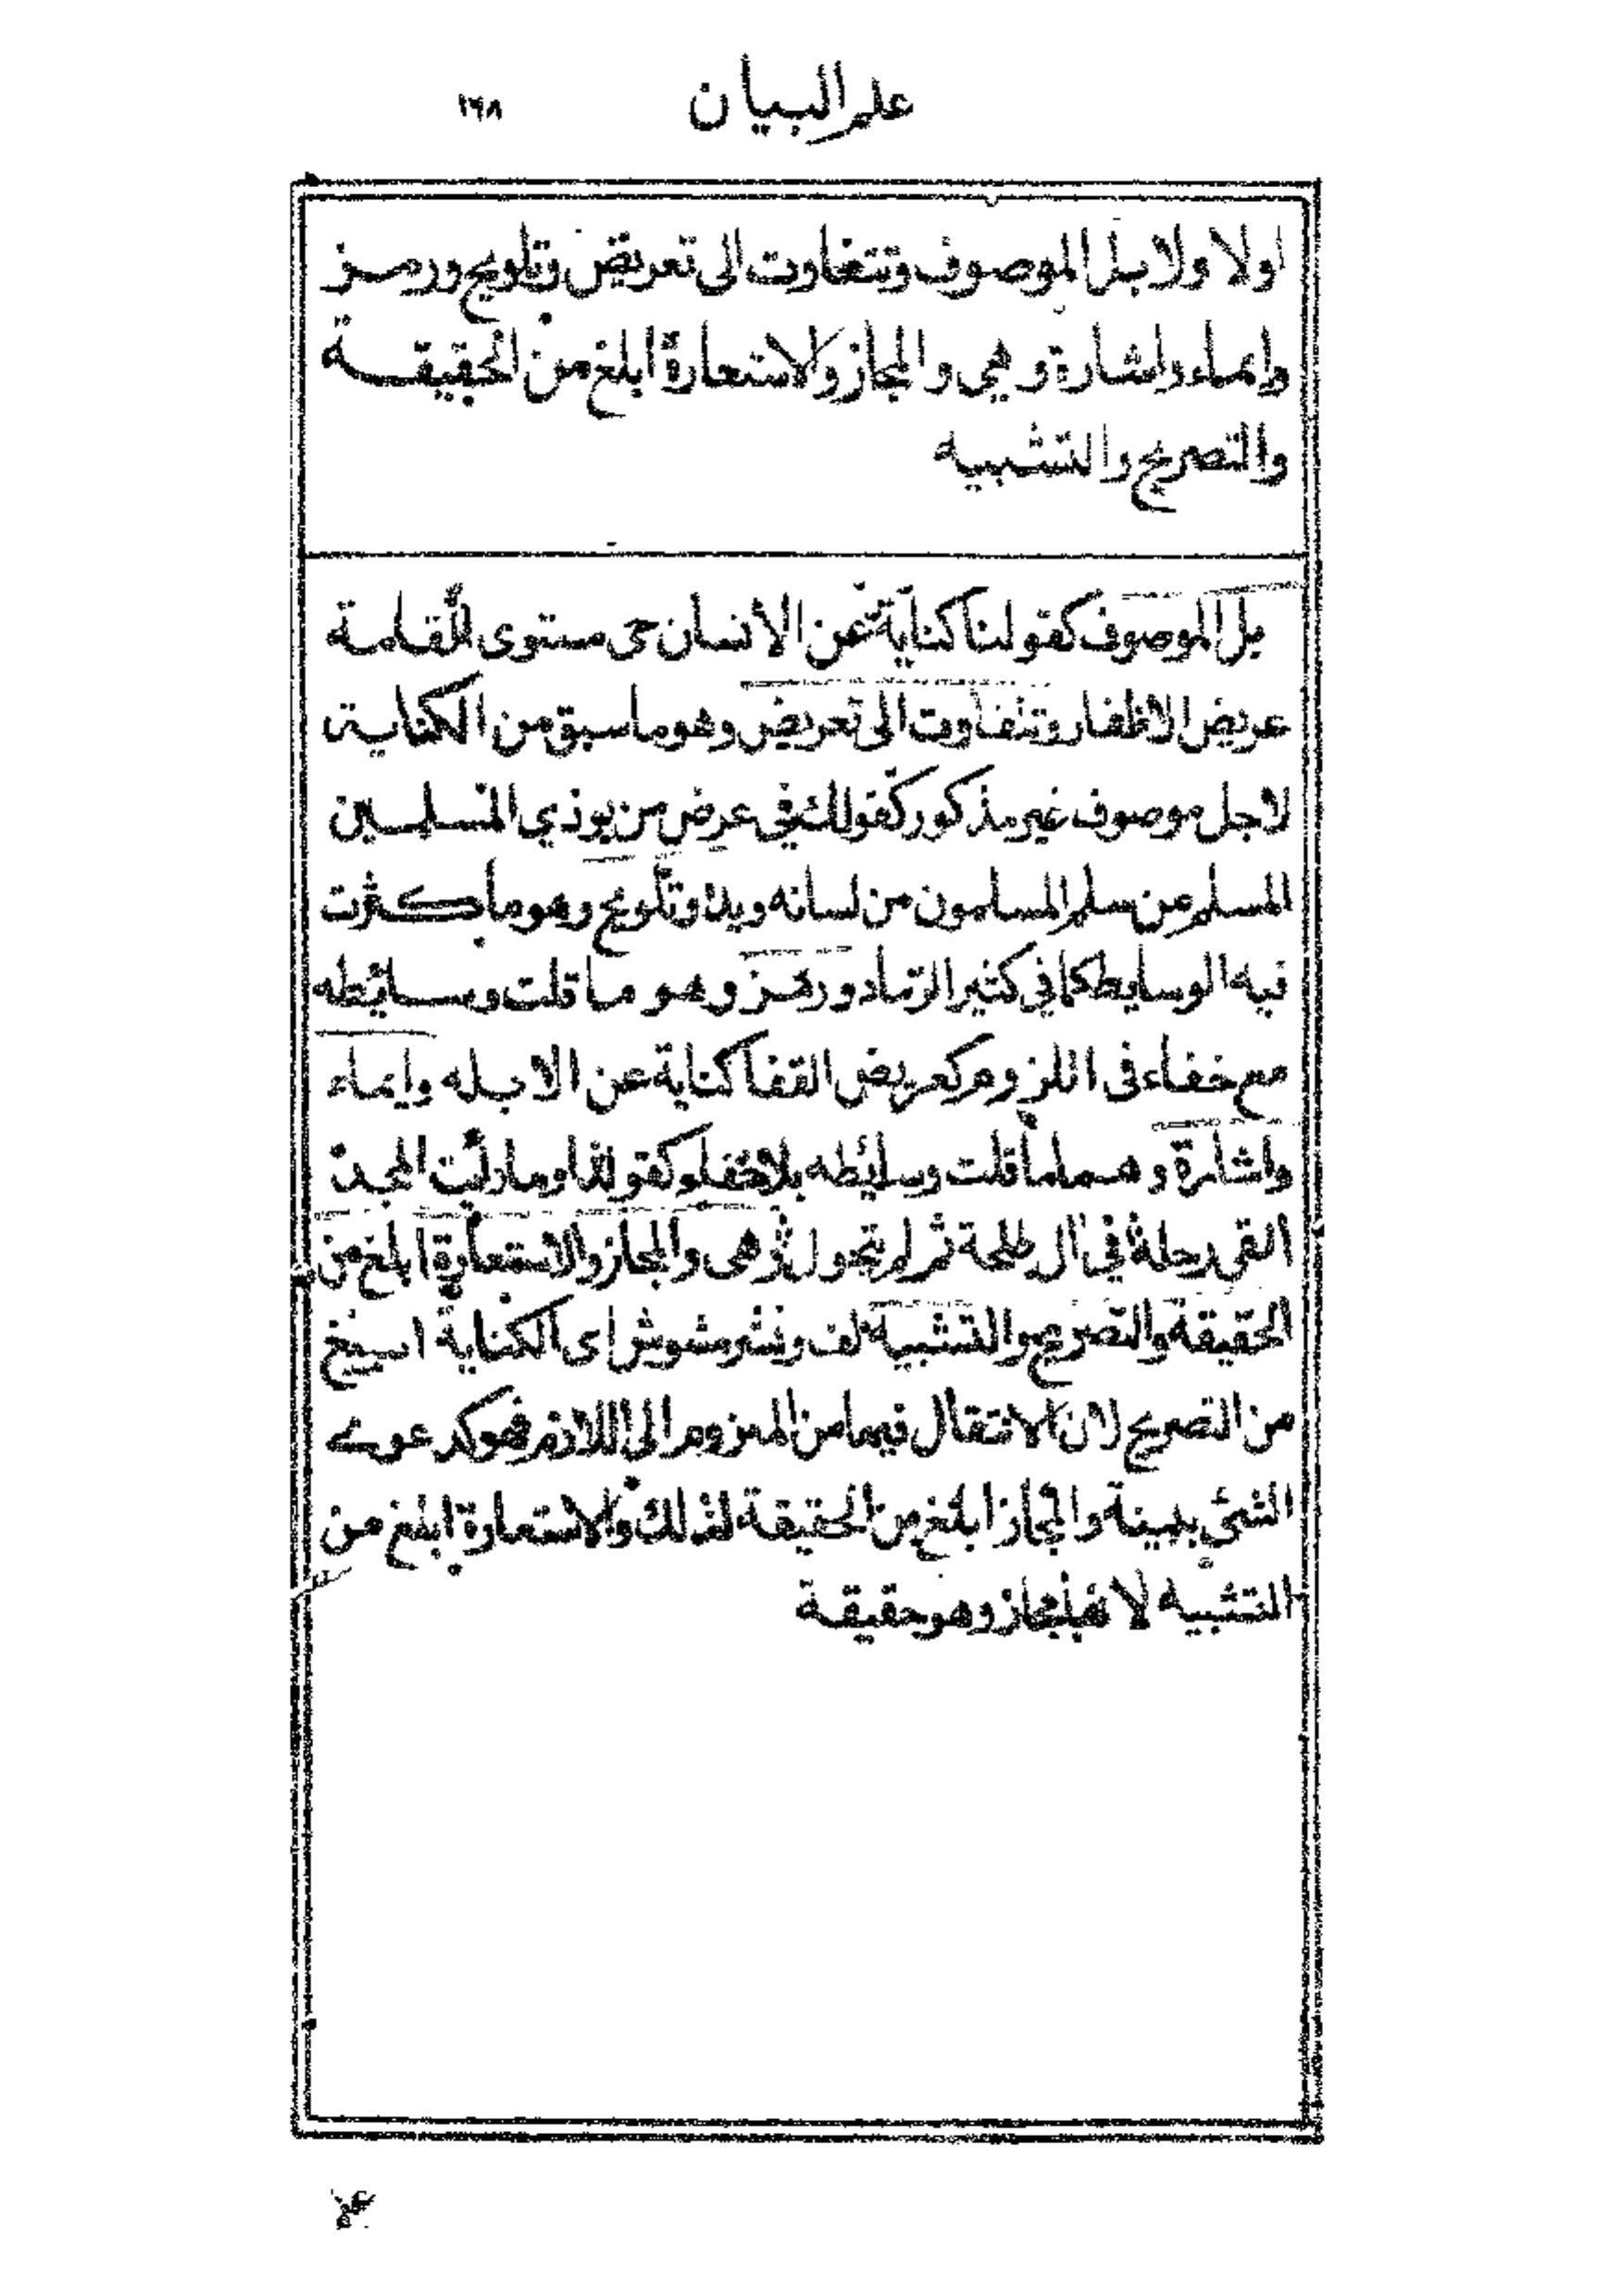 علم البيان ١٦٨
اولا ولا بل الموصوف وتتفاوت الى تعريض وتلويح ورمز
وايماء واشارة وهي والمجاز والاستعارة ابلغ من الحقيقة
والتصريح والتشبيه
بل الموصوف كقولنا كناية عن الأنسان حى مستوى القامة
عريض الاظفار وتتفاوت الى تعريض وهو ما سبق من الكناية
لاجل موصوف غير مذكور كقولك في عرض من يوذي المسلمين
المسلم من سلم المسلمون من لسانه ويده وتلويح وهو ما كثرت
فيه الوسايط كما في كثير الرماد ورمز وهو ما قلت وسائطه
مع خفاء فى اللزوم كعريض القفا كناية عن الابله وايماء
واشارة وهما ما قلت وسائطه بلا خفاء كقولنا وما رأيت المجد
القى رحله في آل طلحة ثم لم يتحول وهى والمجاز والاستعارة ابلغ من
الحقيقة والتصريح والتشبيه لف ونشر مشوش اى الكناية ابلغ
من التصريح لان الانتقال فيها من الملزوم الى اللازم فهو كدعوى
الشئ ببينة والمجاز ابلغ من الحقيقة لذلك والاستعارة ابلغ من
التشبيه لانها مجاز وهو حقيقة